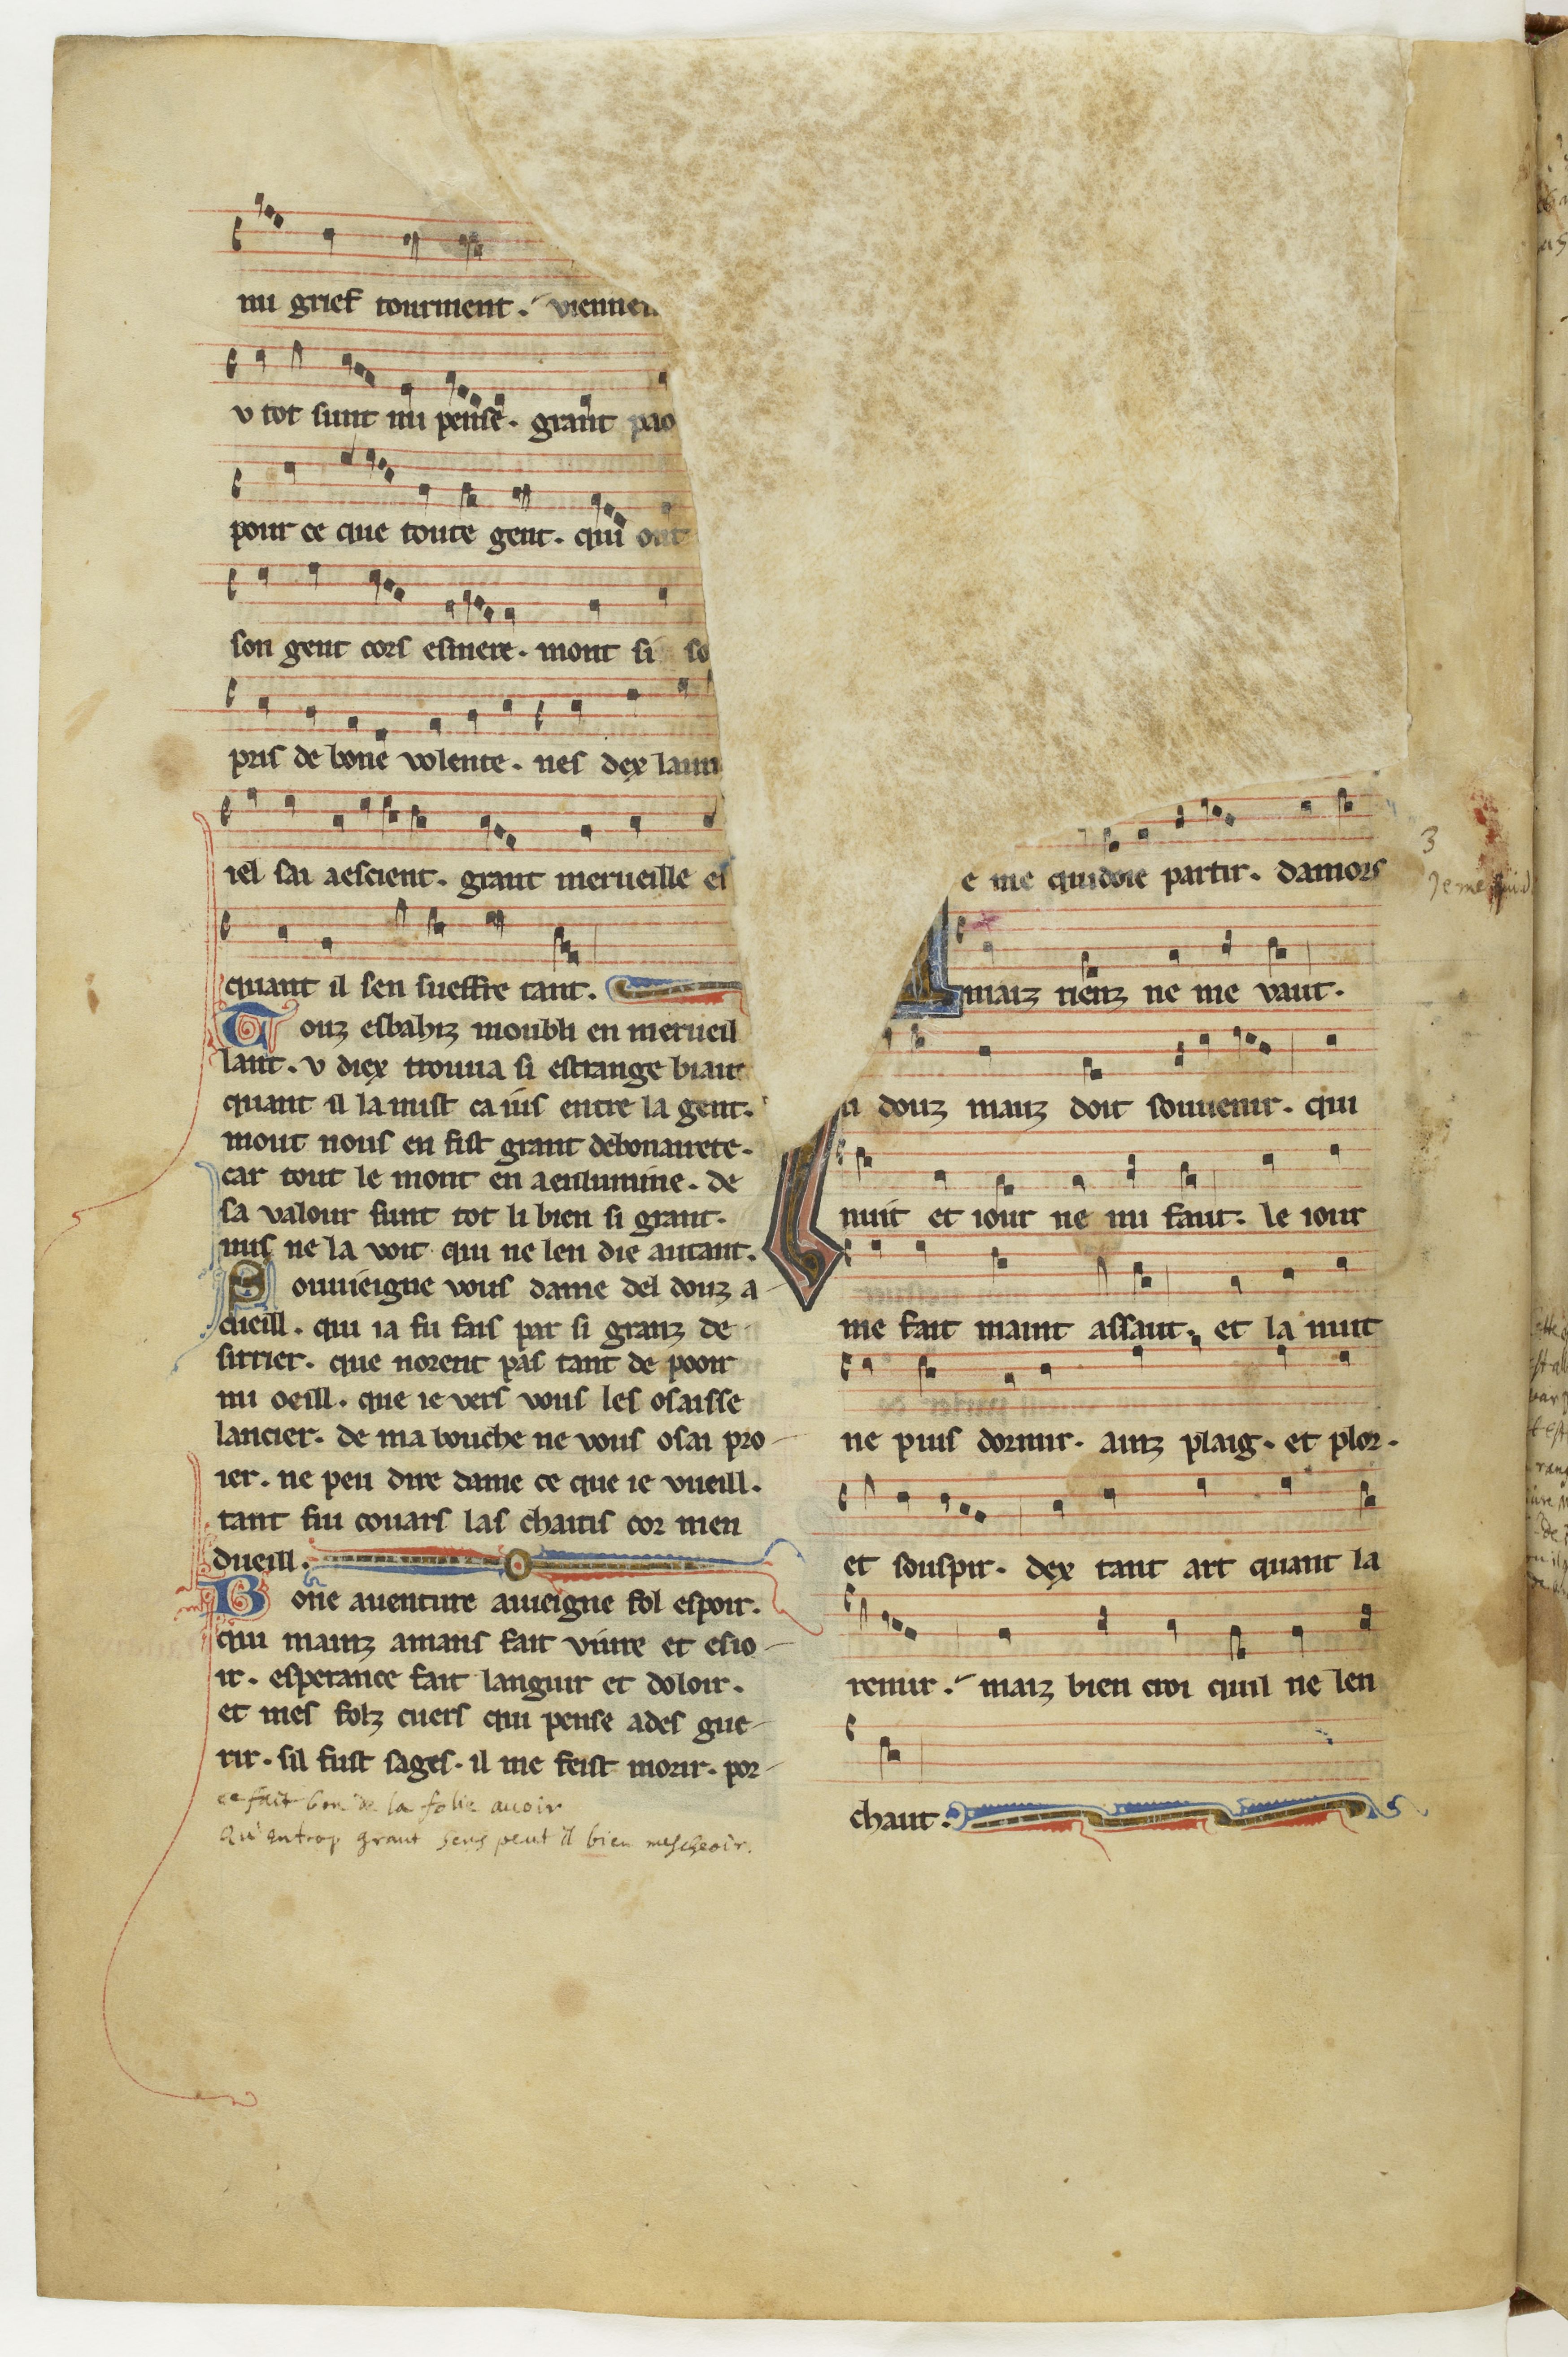 mi grief tourment. viennen
v tot sunt mi pense. grant pao
pour ce que toute gent. qui ont
son gent cors esmere. mont si so
pris de bone volente. nes dex laim
iel sai aescient. grant merueille es
quant il sen sueffre tant.
Touz esbahiz moubli en merueil
lant. v diex trouua si estrange biaut
quant il la mist ca ius entre la gent.
mout nous en fist grant debonairete.
car tout le mont en aenlumine. de
sa valour sunt tot li bien si grant.
nus ne la voit qui ne len die autant.
Souuieigne vous dame del douz a
cueill. qui ia fu fais par si granz de
sirrier. que norent pas tant de pooir
mi oeill. que ie vers vous les osaisse
lancier. de ma bouche ne vous osai pro
ier. ne peu dire dame ce que ie vueill.
tant fui couars las chaitis cor men
dueill.
Bone auenture auieigne fol espoir.
qui mainz amans fait viure et esio
ir. esperance fait languir et doloir.
et mes folz cuers qui pense ades gue
rir. sil fust sages. il me feist morir. por
ce fait bon de la folie avoir
qu'entrop grant sens peut il bien mescheoir.
e me quidoie partir. damors
3
Je me quid
maiz rienz ne me vaut.
li douz mauz doit souuenir. qui
nuit et iour ne mi faut. le iour
me fait maint assaut. et la nuit
ne puis dormir. ainz plaig. et plor.
et souspir. dex tant art quant la
remir. maiz bien croi quil ne len
chaut.